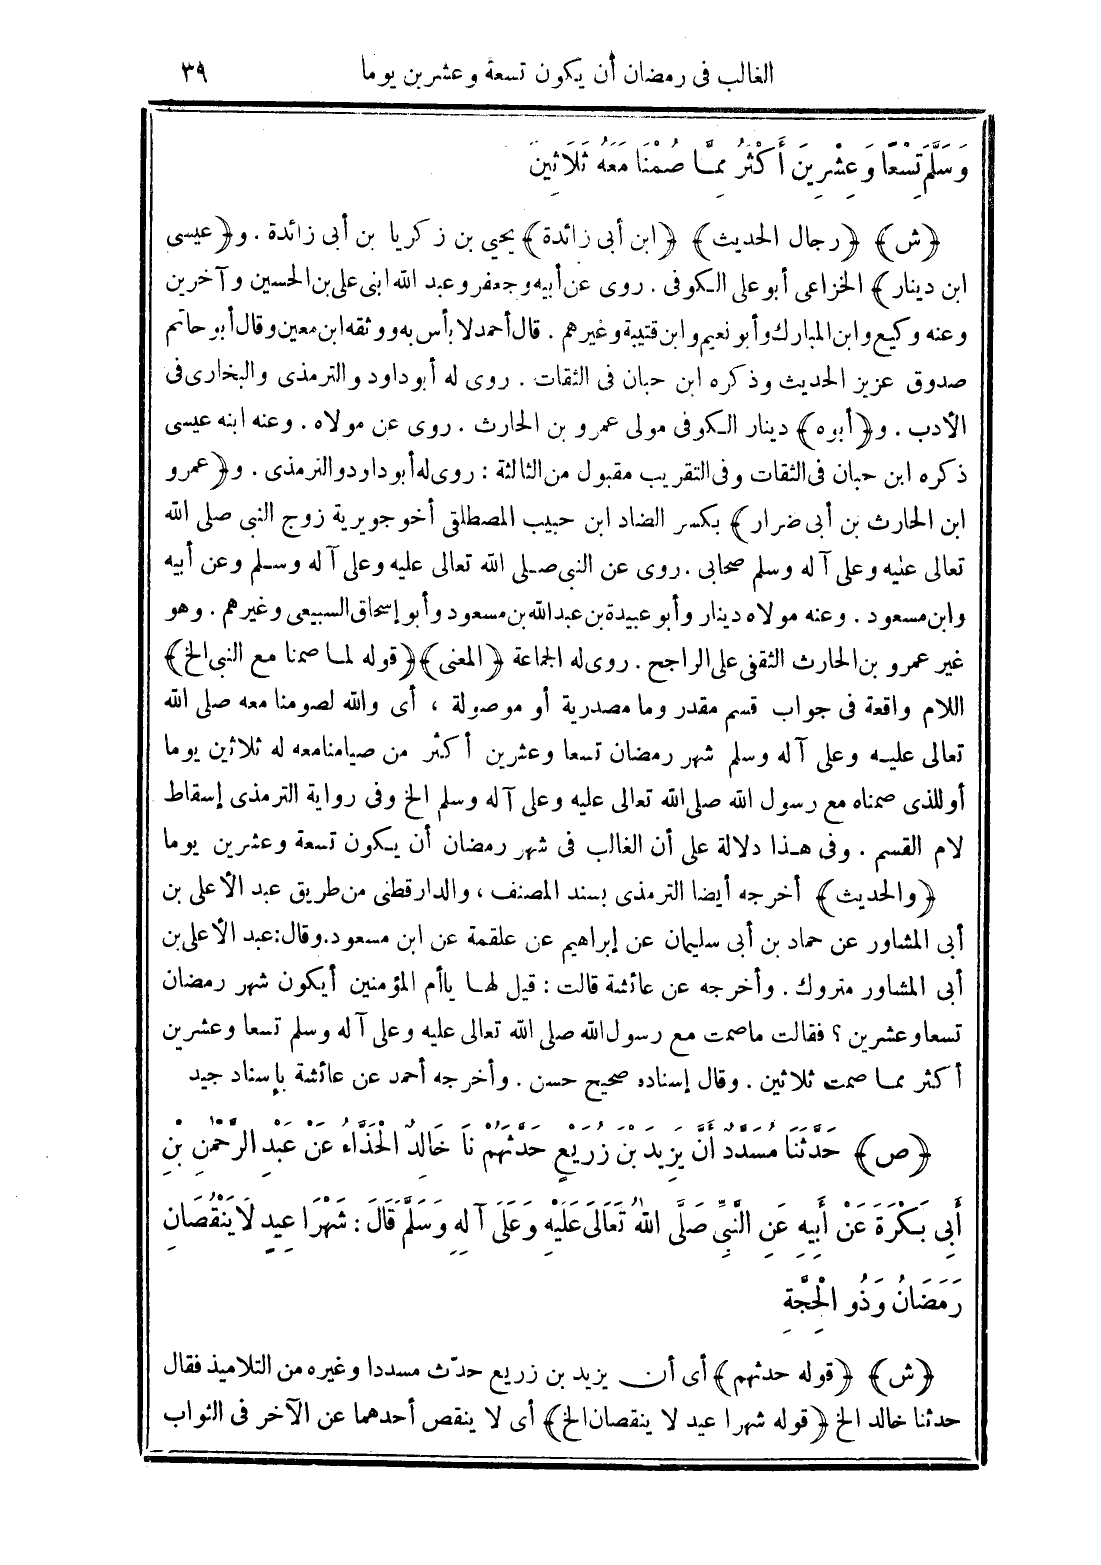 الغالب فى رمضان أن يكون تسعة وعشرين يوما ٣٩
وَسَلَّمَ تِسْعًا وَعِشْرِينَ أَكْثَرُ مِمَّا صُمْنَا مَعَهُ ثَلَاثِينَ
﴿ش﴾ ﴿رجال الحديث﴾ ﴿ابن أبى زائدة﴾ يحيى بن زكريا بن أبى زائدة . و﴿عيسى
ابن دينار﴾ الخزاعى أبو على الكوفى . روى عن أبيه وجعفر وعبد الله ابنى على بن الحسين وآخرين
وعنه وكيع وابن المبارك وأبو نعيم وابن قتيبة وغيرهم . قال أحمد لا بأس به ووثقه ابن معين وقال أبو حاتم
صدوق عزيز الحديث وذكره ابن حبان فى الثقات . روى له أبو داود والترمذى والبخارى فى
الأدب . و﴿أبوه﴾ دينار الكوفى مولى عمرو بن الحارث . روى عن مولاه . وعنه ابنه عيسى
ذكره ابن حبان فى الثقات وفى التقريب مقبول من الثالثة : روى له أبو داود والترمذى . و﴿عمرو
ابن الحارث بن أبى ضرار﴾ بكسر الضاد ابن حبيب المصطلقى أخو جويرية زوج النبى صلى الله
تعالى عليه وعلى آله وسلم صحابى . روى عن النبى صلى الله تعالى عليه وعلى آله وسلم وعن أبيه
وابن مسعود . وعنه مولاه دينار وأبو عبيدة بن عبد الله بن مسعود وأبو إسحاق السبيعى وغيرهم . وهو
غير عمرو بن الحارث الثقفى على الراجح . روى له الجماعة ﴿المعنى﴾ ﴿قوله لما صمنا مع النبى الخ﴾
اللام واقعة فى جواب قسم مقدر وما مصدرية أو موصولة ، أى والله لصومنا معه صلى الله
تعالى عليه وعلى آله وسلم شهر رمضان تسعا وعشرين أكثر من صيامنا معه له ثلاثين يوما
أو للذى صمناه مع رسول الله صلى الله تعالى عليه وعلى آله وسلم الخ وفى رواية الترمذى إسقاط
لام القسم . وفى هذا دلالة على أن الغالب فى شهر رمضان أن يكون تسعة وعشرين يوما
﴿والحديث﴾ أخرجه أيضا الترمذى بسند المصنف ، والدارقطنى من طريق عبد الأعلى بن
أبى المشاور عن حماد بن أبى سليمان عن إبراهيم عن علقمة عن ابن مسعود . وقال : عبد الأعلى بن
أبى المشاور متروك . وأخرجه عن عائشة قالت : قيل لها يا أم المؤمنين أيكون شهر رمضان
تسعا وعشرين ؟ فقالت ما صمت مع رسول الله صلى الله تعالى عليه وعلى آله وسلم تسعا وعشرين
أكثر مما صمت ثلاثين . وقال إسناده صحيح حسن . وأخرجه أحمد عن عائشة بإسناد جيد
﴿ص﴾ حَدَّثَنَا مُسَدَّدٌ أَنَّ يَزِيدَ بْنَ زُرَيْعٍ حَدَّثَهُمْ نَا خَالِدٌ الْحَذَّاءُ عَنْ عَبْدِ الرَّحْمٰنِ بْنِ
أَبِى بَكْرَةَ عَنْ أَبِيهِ عَنِ النَّبِىِّ صَلَّى اللهُ تَعَالَى عَلَيْهِ وَعَلَى آلِهِ وَسَلَّمَ قَالَ : شَهْرَا عِيدٍ لَا يَنْقُصَانِ
رَمَضَانُ وَذُو الْحِجَّةِ
﴿ش﴾ ﴿قوله حدثهم﴾ أى أن يزيد بن زريع حدّث مسددا وغيره من التلاميذ فقال
حدثنا خالد الخ ﴿قوله شهرا عيد لا ينقصان الخ﴾ أى لا ينقص أحدهما عن الآخر فى الثواب